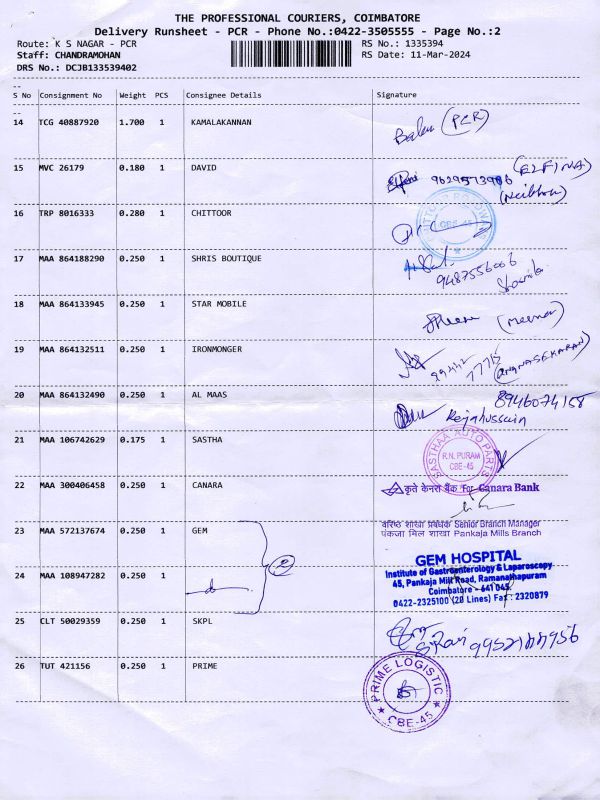 THE PROFESSIONAL COURIERS, COIMBATORE
Delivery Runsheet - PCR - Phone No.:0422-3505555 - Page No.:2
Route: K S NAGAR - PCR RS No.: 1335394
Staff: CHANDRAMOHAN RS Date: 11-Mar-2024
DRS No.: DCJB133539402
S No Consignment No Weight PCS Consignee Details Signature
14 TCG 40887920 1.700 1 KAMALAKANNAN (PCR)
15 MVC 26179 0.180 1 DAVID (ELFINA)
16 TRP 8016333 0.280 1 CHITTOOR CBE-45
17 MAA 864188290 0.250 1 SHRIS BOUTIQUE
9487556006
18 MAA 864133945 0.250 1 STAR MOBILE (Meena)
19 MAA 864132511 0.250 1 IRONMONGER
(GNANASEKARAN)
20 MAA 864132490 0.250 1 AL MAAS 8946074158
Rejahussain
21 MAA 106742629 0.175 1 SASTHA SASTHAA AUTO PARTS
R.N. PURAM
CBE-45
22 MAA 300406458 0.250 1 CANARA कृते केनरा बैंक For Canara Bank
वरिष्ठ शाखा प्रबंधक Senior Branch Manager
23 MAA 572137674 0.250 1 GEM पंकजा मिल शाखा Pankaja Mills Branch
2
GEM HOSPITAL
Institute of Gastroenterology & Laparoscopy
24 MAA 108947282 0.250 1 45, Pankaja Mill Road, Ramanathapuram
Coimbatore - 641 045.
0422-2325100 (20 Lines) Fax : 2320879
25 CLT 50029359 0.250 1 SKPL
26 TUT 421156 0.250 1 PRIME PRIME LOGISTIC
CBE-45